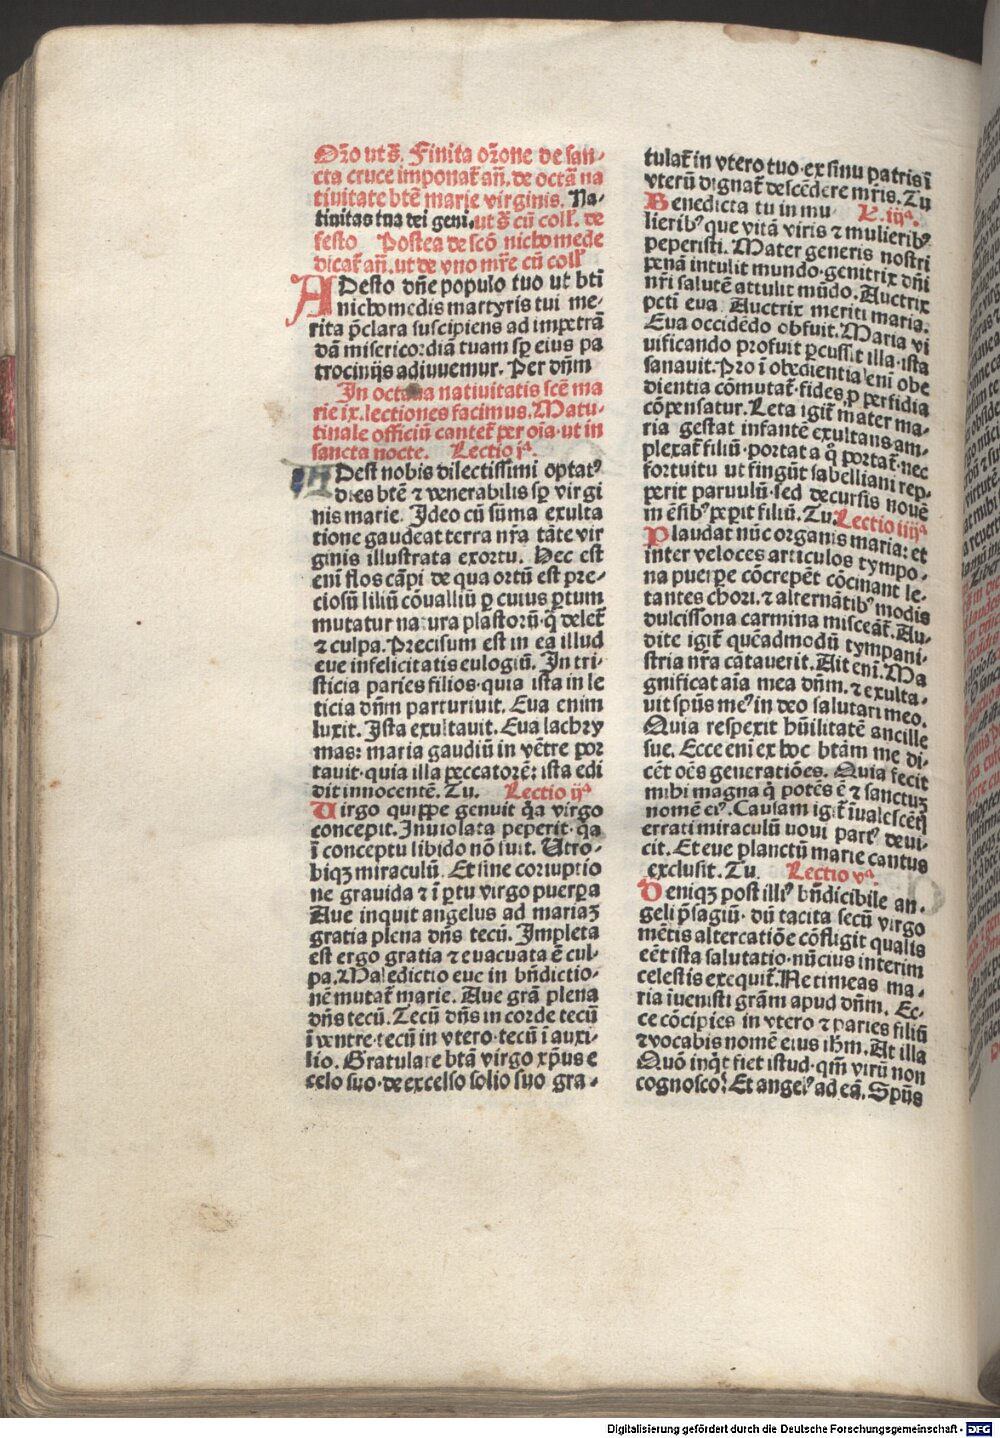 Or̄o ut s̄. Finita or̄one de san-
cta cruce imponat᷑ an̄. de octa᷑ na
tiuitate btē marie virginis. Na-
tiuitas tua dei geni. ut s̄ cū coll. de
festo Postea de scō nichomede
dicat᷑ an̄. ut de vno mr̄e cū coll
ADesto dn̄e populo tuo ut bti
nichomedis martyris tui me-
rita p̄clara suscipiens ad impetrā
dā misericordiā tuam sp̄ eius pa
trocinijs adiuuemur. Per dn̄m
In octaua natiuitatis scē ma
rie ix. lectiones facimus. Matu-
tinale officiū cantet᷑ per oīa. ut in
sancta nocte. Lectio jª.
ADest nobis dilectissimi optatꝰ
dies btē ⁊ venerabilis sp̄ virgi
nis marie. Ideo cū sūma exulta
tione gaudeat terra nr̄a tāte vir
ginis illustrata exortu. Hec est
enī flos cāpi de qua ortū est pre-
ciosū liliū cōualliū ꝑ cuius ꝑtum
mutatur natura plastorū. q̄ delet᷑
⁊ culpa. Precisum est in ea illud
eue infelicitatis eulogiū. In tri-
sticia paries filios. quia ista in le
ticia dn̄m parturiuit. Eua enim
luxit. Ista exultauit. Eua lachry
mas: maria gaudiū in vētre por
tauit. quia illa peccatorē: ista edi
dit innocentē. Tu. Lectio ijª
Uirgo quippe genuit q̄a virgo
concepit. Inuiolata peperit. q̄a
ī conceptu libido nō fuit. Utro-
biqꝫ miraculū. Et sine corruptio
ne grauida ⁊ ī ꝑtu virgo puerꝑa
Aue inquit angelus ad mariaꝫ
gratia plena dn̄s tecū. Impleta
est ergo gratia ⁊ euacuata ē cul-
pa. Maledictio eue in bn̄dictio-
nē mutat᷑ marie. Aue grā plena
dn̄s tecū. Tecū dn̄s in corde tecū
ī ventre. tecū in vtero. tecū ī auxi-
lio. Gratulare btā virgo xp̄us e
celo suo. de excelso solio suo gra-
tulat᷑ in vtero tuo. ex sinu patris ī
vterū dignat᷑ descēdere mr̄is. Tu
Benedicta tu in mu L. iijª.
lieribꝰ que vitā viris ⁊ mulieribꝰ
peperisti. Mater generis nostri
penā intulit mundo. genitrix dn̄i
nr̄i salutē attulit mūdo. Auctrix
pcti eua Auctrix meriti maria.
Eua occidēdo obfuit. Maria vi
uificando profuit ꝑcussit illa. ista
sanauit. Pro ī obediētia enī obe
dientia cōmutat᷑. fides ꝓ perfidia
cōpensatur. Leta igit᷑ mater ma-
ria gestat infantē exultans am-
plexat᷑ filiū. portat a q̄ portat᷑. nec
fortuitu ut fingūt sabelliani rep-
perit paruulū. sed decursis nouē
mēsibꝰ peꝑit filiū. Tu. Lectio iiijª
Plaudat nūc organis maria: et
inter veloces articulos tympo-
na puerꝑe cōcrepēt cōcinant le-
tantes chori. ⁊ alternātibꝰ modis
dulcissona carmina misceāt. Au-
dite igit᷑ quēadmodū tympani-
stria nr̄a cātauerit. Ait enī. Ma
gnificat aīa mea dn̄m. ⁊ exulta-
uit sp̄us meꝰ in deo salutari meo.
Quia respexit hūilitatē ancille
sue. Ecce enī ex hoc btām me di-
cēt oēs generatiōes. Quia fecit
mihi magna q̄ potēs ē ⁊ sanctuꝫ
nomē eiꝰ. Causam igit᷑ īualescētꝭ
errati miraculū noui partꝰ deui-
cit. Et eue planctū marie cantus
exclusit. Tu. Lectio vª.
Deniqꝫ post illiꝰ bn̄dicibile an-
geli p̄sagiū. dū tacita secū virgo
mētis altercatiōe cōfligit qualis
eēt ista salutatio. nūcius interim
celestis exequit᷑. Ne timeas ma-
ria īuenisti grām apud dn̄m. Ec-
ce cōcipies in vtero ⁊ paries filiū
⁊ vocabis nomē eius ih̄m. At illa
Quō inq̄t fiet istud. qm̄ virū non
cognosco? Et angelꝰ ad eā. Sp̄us
Digitalisierung gefördert durch die Deutsche Forschungsgemeinschaft - DFG